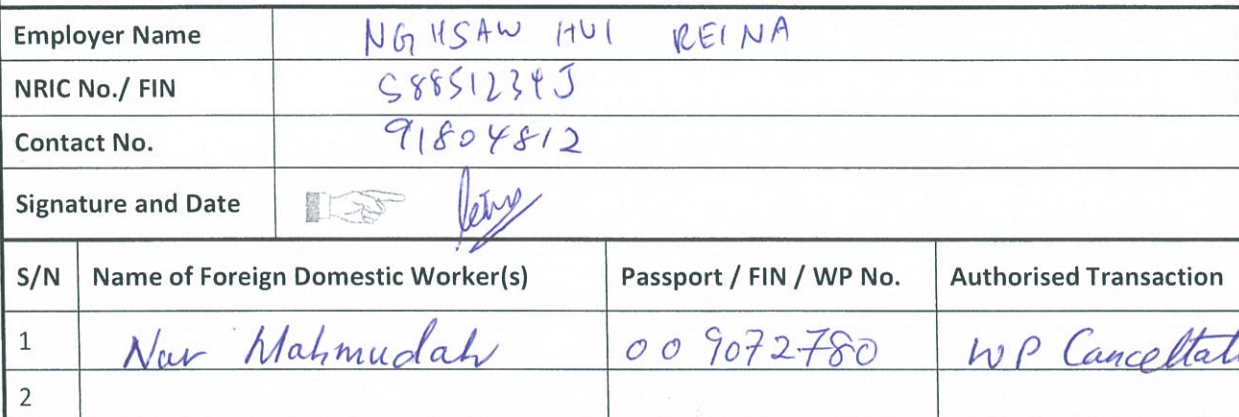 Employer Name NG HSAW HUI REINA
NRIC No./ FIN S8851234J
Contact No. 91804812
Signature and Date
S/N Name of Foreign Domestic Worker(s) Passport / FIN / WP No. Authorised Transaction
1 Nur Mahmudah 009072780 WP Cancellat
2